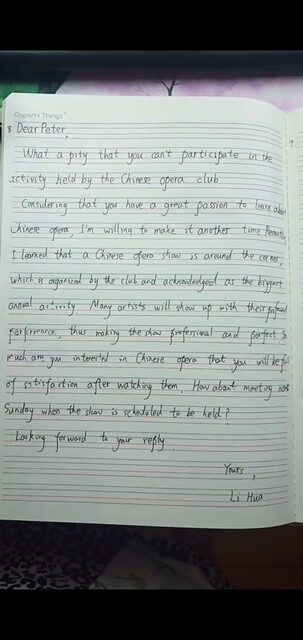 Dear Peter,
What a pity that you can't participate in the
activity held by the Chinese opera club
Considering that you have a great passion to learn about
Chinese opera, I'm willing to make it another time Recently
I learned that a Chinese opera show is around the corner,
which is organized by the club and acknowledged as the biggest
annual activity. Many artists will show up with their profound
performance, thus making the show professional and perfect So
much are you interested in Chinese opera that you will be full
of satisfaction after watching them. How about meeting next
Sunday when the show is scheduled to be held?
Looking forward to your reply
Yours,
Li Hua